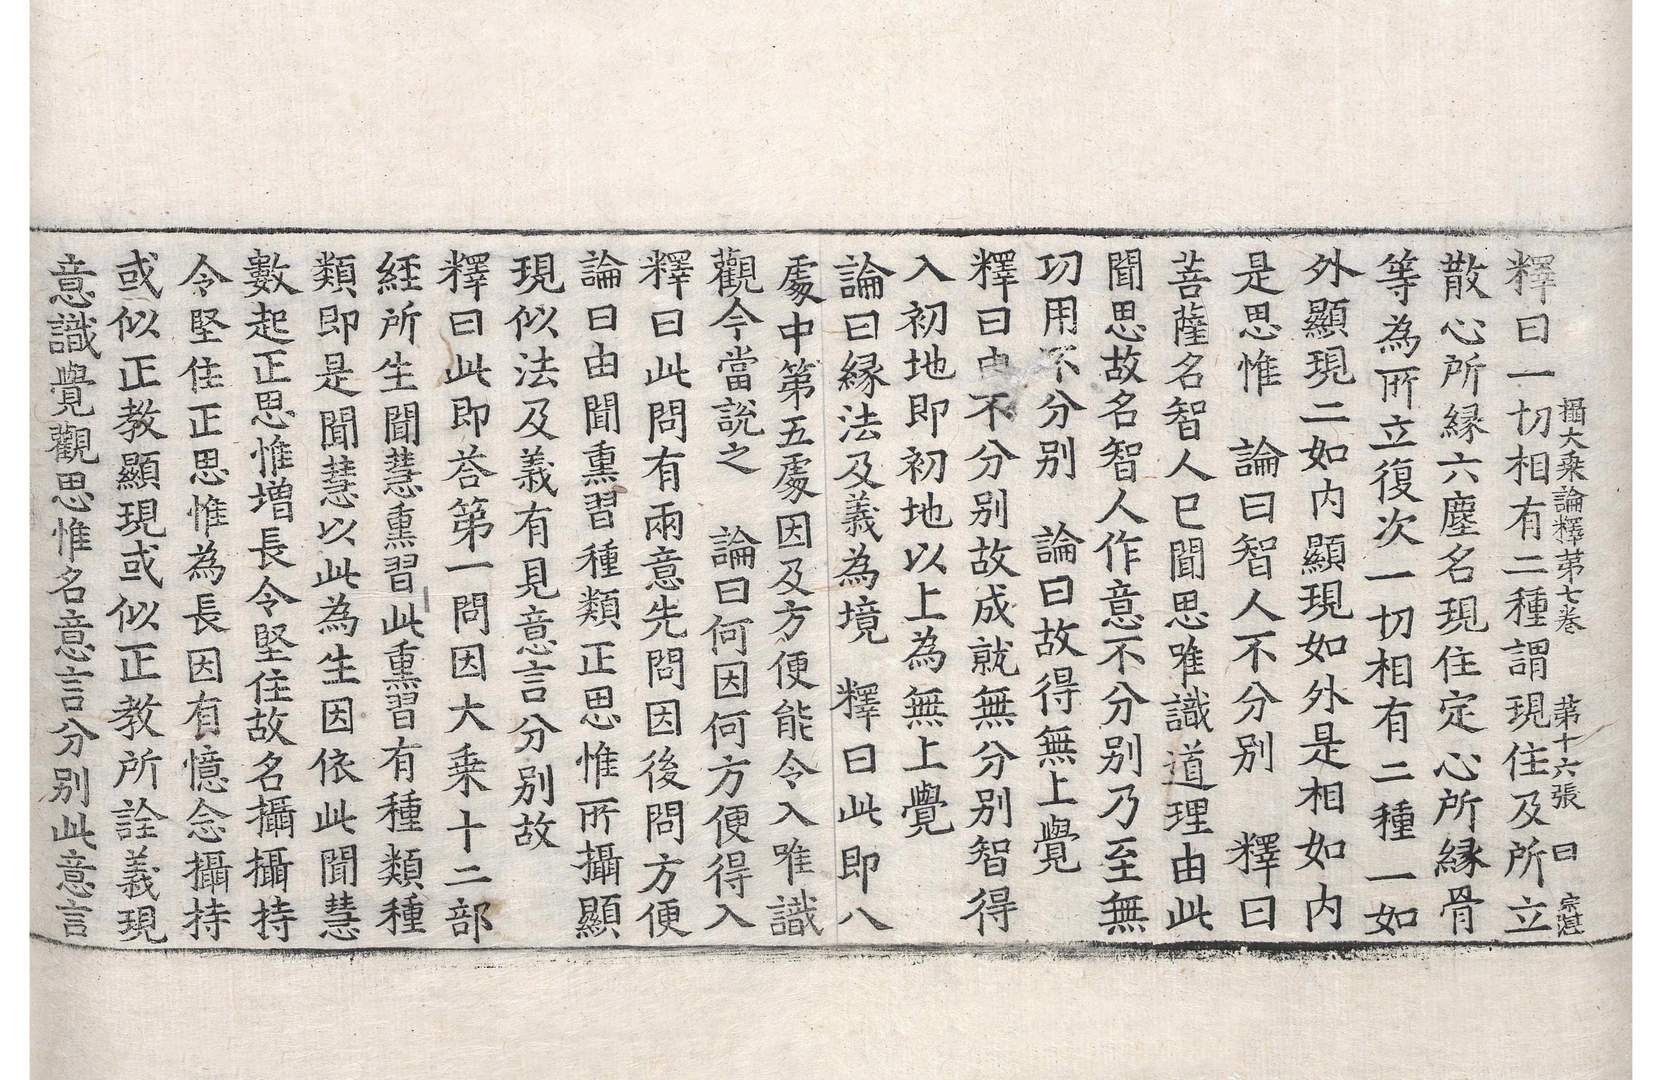 攝大乘論釋第七卷　第十六張　曰　宗湛
釋曰一切相有二種謂現住及所立
散心所緣六塵名現住定心所緣骨
等為所立復次一切相有二種一如
外顯現二如內顯現如外是相如內
是思惟　論曰智人不分別　釋曰
菩薩名智人已聞思唯識道理由此
聞思故名智人作意不分別乃至無
功用不分別　論曰故得無上覺
釋曰由不分別故成就無分別智得
入初地即初地以上為無上覺
論曰緣法及義為境　釋曰此即八
處中第五處因及方便能令入唯識
觀今當說之　論曰何因何方便得入
釋曰此問有兩意先問因後問方便
論曰由聞熏習種類正思惟所攝顯
現似法及義有見意言分別故
釋曰此即荅第一問因大乘十二部
經所生聞慧熏習此熏習有種類種
類即是聞慧以此為生因依此聞慧
數起正思惟增長令堅住故名攝攝持
令堅住正思惟為長因有憶念攝持
或似正教顯現或似正教所詮義現
意識覺觀思惟名意言分別此意言